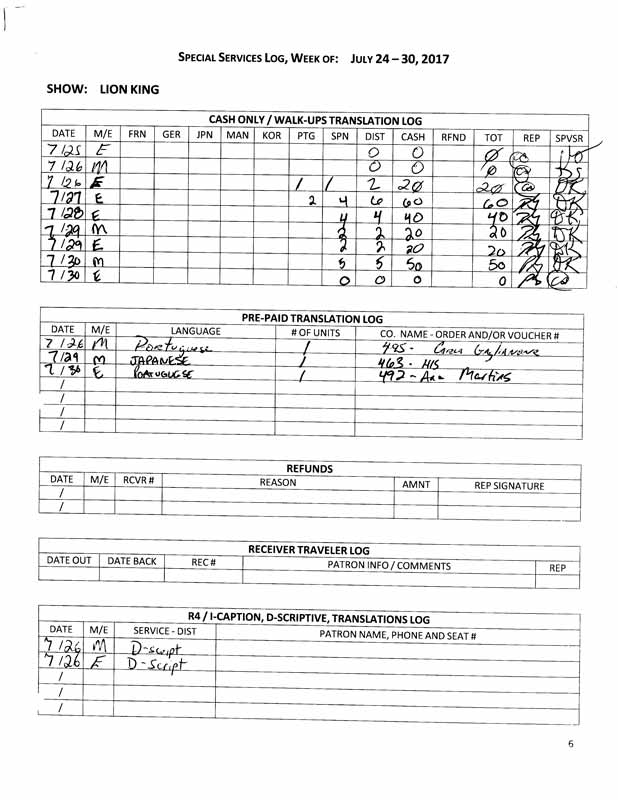 SPECIAL SERVICES LOG, WEEK OF: JULY 24 – 30, 2017
SHOW: LION KING
CASH ONLY / WALK-UPS TRANSLATION LOG
DATE M/E FRN GER JPN MAN KOR PTG SPN DIST CASH RFND TOT REP SPVSR
7/25 E 0 0 0
7/26 M 0 0 0
7/26 E 1 1 2 20 20 DK
7/27 E 2 4 6 60 60 DK
7/28 E 4 4 40 40 DK
7/29 M 2 2 20 20 DK
7/29 E 2 2 20 20 DK
7/30 M 5 5 50 50 DK
7/30 E 0 0 0 0
PRE-PAID TRANSLATION LOG
DATE M/E LANGUAGE # OF UNITS CO. NAME - ORDER AND/OR VOUCHER #
7/26 M Portuguese 1 495 -
7/29 M JAPANESE 1 463 - HIS
7/30 E PORTUGUESE 1 492 - Ana Martins
/
/
/
/
REFUNDS
DATE M/E RCVR # REASON AMNT REP SIGNATURE
/
/
RECEIVER TRAVELER LOG
DATE OUT DATE BACK REC # PATRON INFO / COMMENTS REP
R4 / I-CAPTION, D-SCRIPTIVE, TRANSLATIONS LOG
DATE M/E SERVICE - DIST PATRON NAME, PHONE AND SEAT #
7/26 M D-script
7/26 E D-Script
/
/
/
6